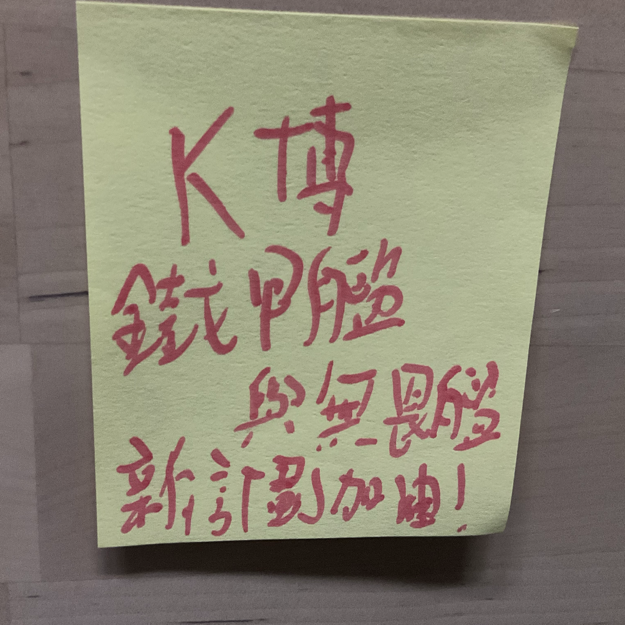 K博
鐵甲艦
與無畏艦
新計劃加油!